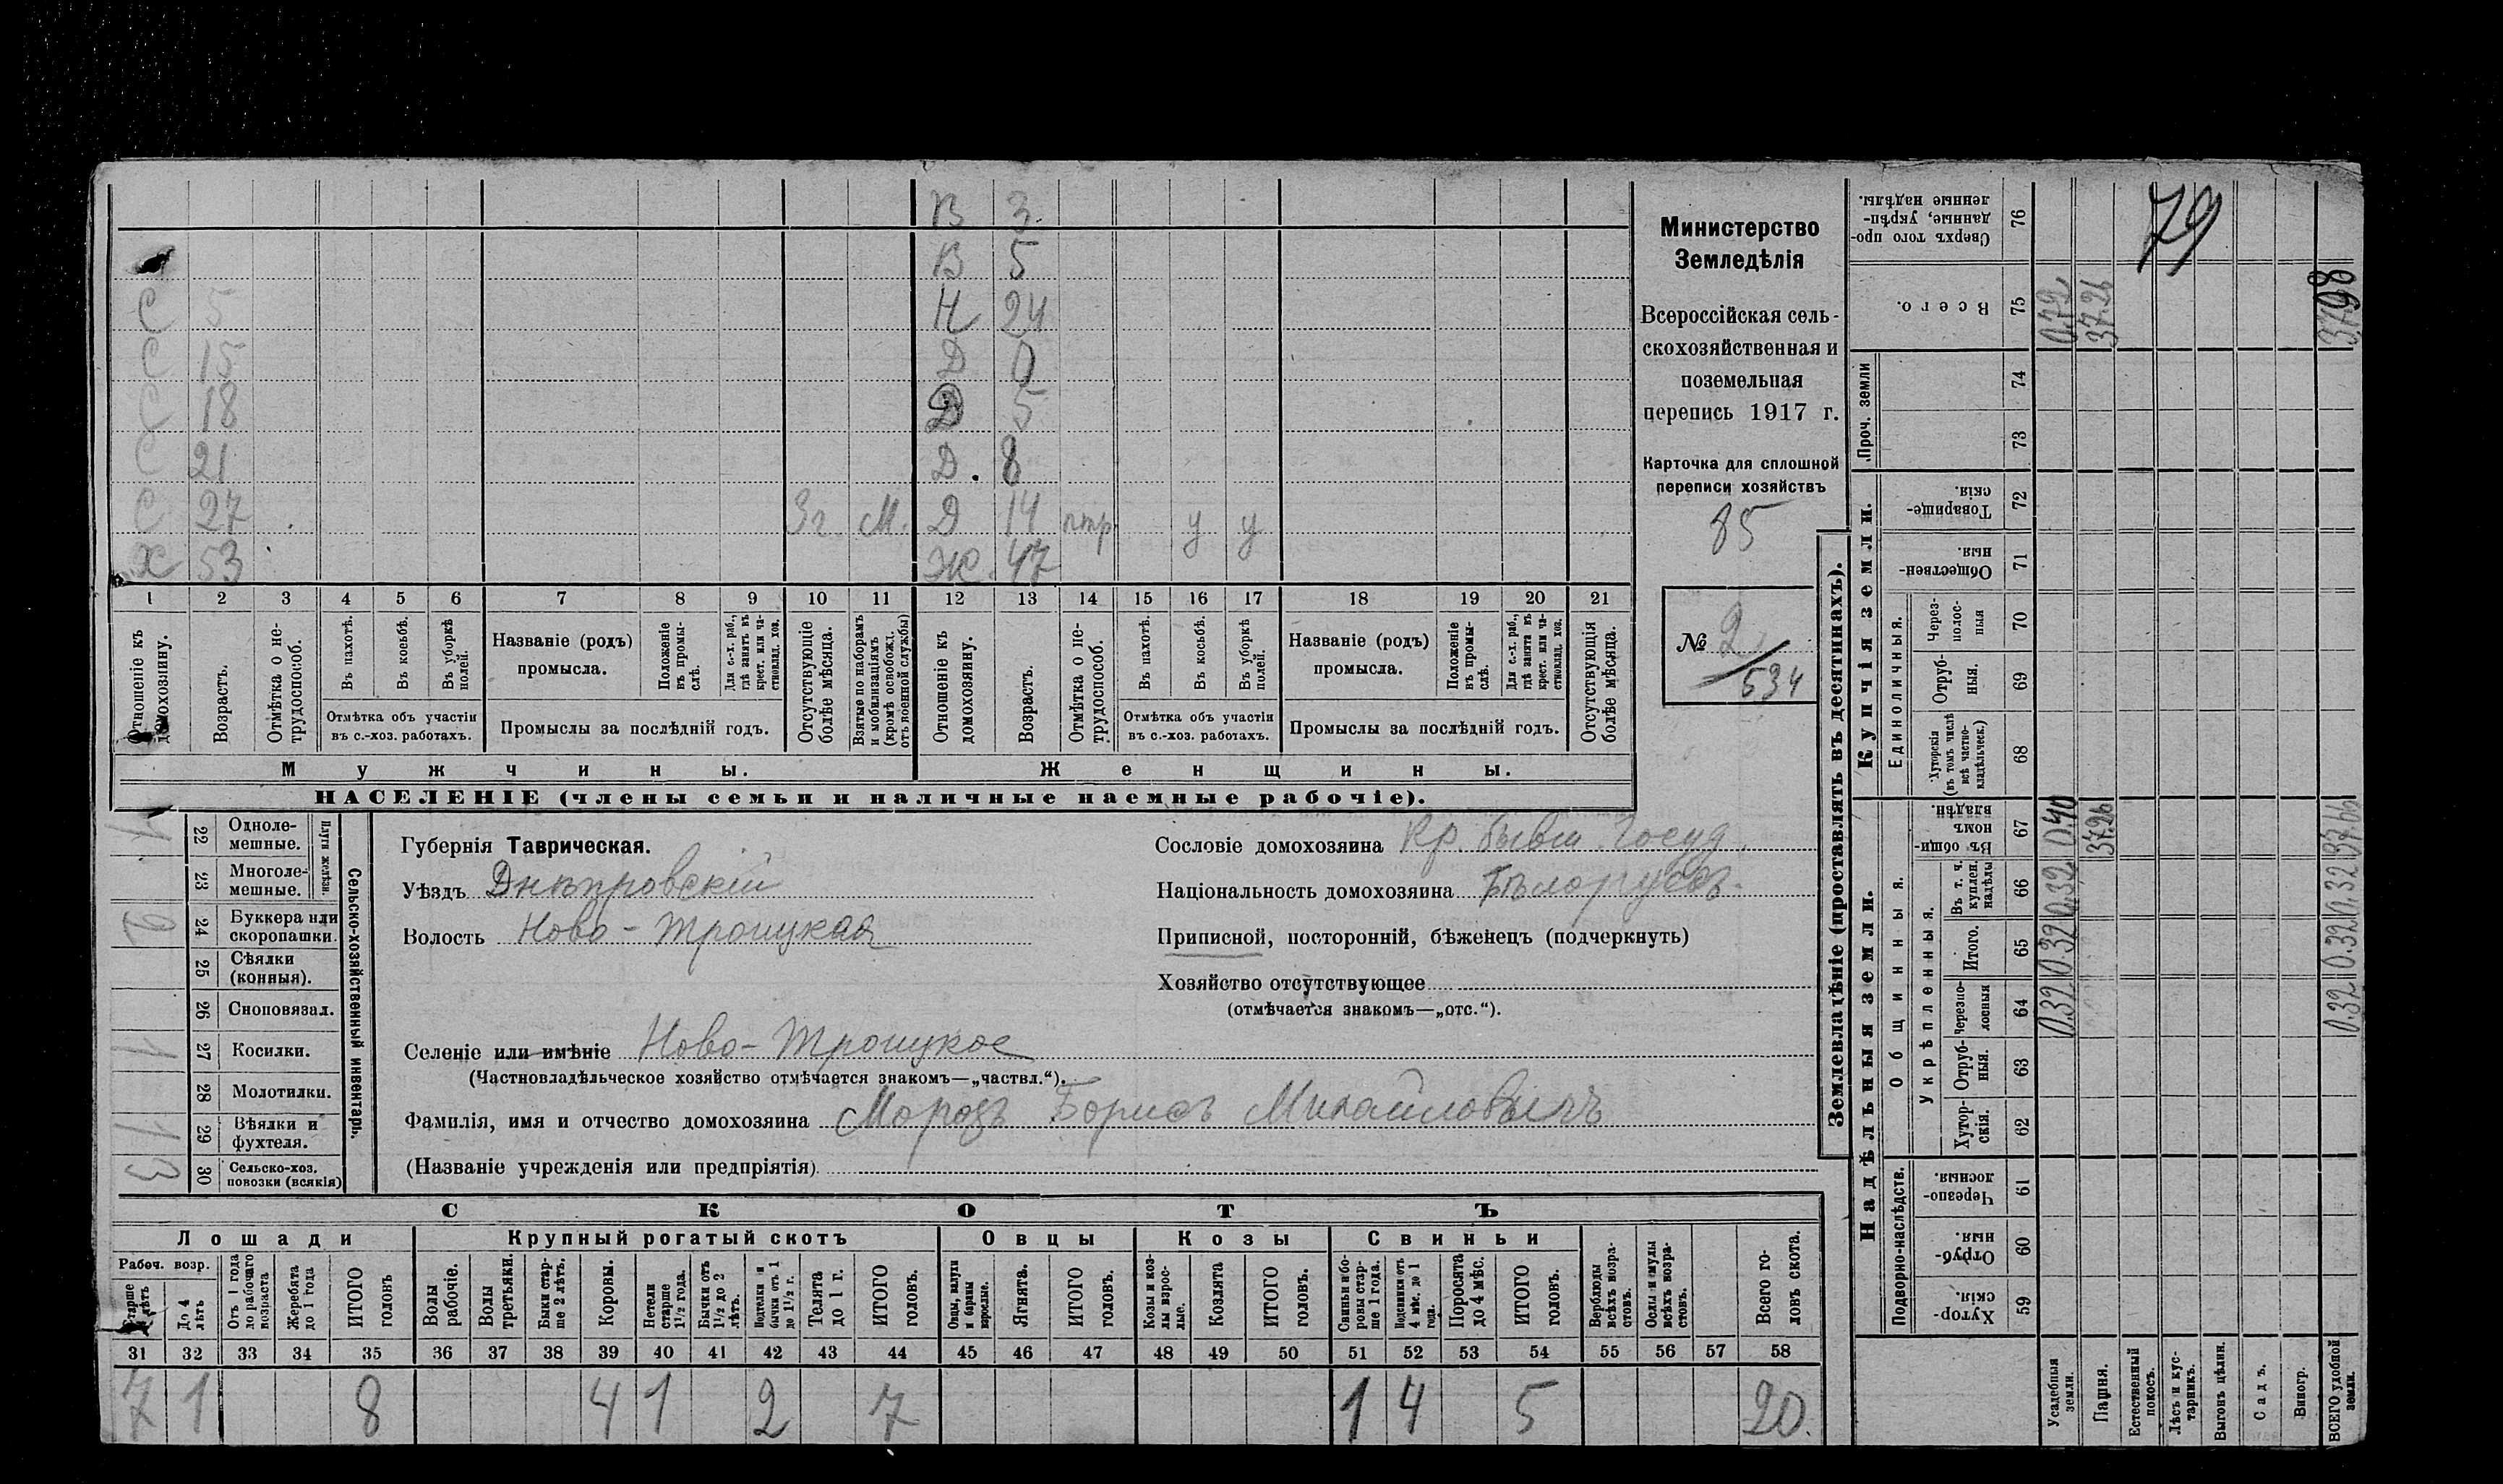 В 3
В 5
С 5 Н 24
С 15 Д 0
С 18 Д 5
С 21 Д. 8
С 27 3г. М. Д 14 птр у у
Х 53 Ж. 47
1 2 3 4 5 6 7 8 9 10 11 12 13 14 15 16 17 18 19 20 21
Отношеніе къ домохозяину.
Возрастъ.
Отмѣтка о не-
трудоспособ.
Въ пахотѣ.
Въ косьбѣ.
Въ уборкѣ
полей.
Отмѣтка объ участіи
въ с.-хоз. работахъ.
Названіе (родъ)
промысла.
Положеніе
въ промы-
слѣ.
Для с.-х. раб.,
гдѣ занятъ въ
крест. или ча-
стновлад. хоз.
Промыслы за послѣдній годъ.
Отсутствующіе
болѣе мѣсяца.
Взятые по наборамъ
и мобилизаціямъ
(кромѣ освобожд.
отъ военной службы)
Отношеніе къ
домохозяину.
Возрастъ.
Отмѣтка о не-
трудоспособ.
Въ пахотѣ.
Въ косьбѣ.
Въ уборкѣ
полей.
Отмѣтка объ участіи
въ с.-хоз. работахъ.
Названіе (родъ)
промысла.
Положеніе
въ промы-
слѣ.
Для с.-х. раб.,
гдѣ занятъ въ
крест. или ча-
стновлад. хоз.
Промыслы за послѣдній годъ.
Отсутствующія
болѣе мѣсяца.
Мужчины.
Женщины.
НАСЕЛЕНІЕ (члены семьи и наличные наемные рабочіе).
Министерство
Земледѣлія
Всероссійская сель-
скохозяйственная и
поземельная
перепись 1917 г.
Карточка для сплошной
переписи хозяйствъ
85
№ 2
534
Сельско-хозяйственный инвентарь.
Плуги желѣзн.
22 Одноле-
мешные. 1
23 Многоле-
мешные.
24 Буккера или
скоропашки. 2
25 Сѣялки
(конныя).
26 Сноповязал.
27 Косилки. 1
28 Молотилки.
29 Вѣялки и
фухтеля. 1
30 Сельско-хоз.
повозки (всякія) 3
Губернія Таврическая.
Уѣздъ Днѣпровскій
Волость Ново-Троицкая
Селеніе или имѣніе Ново-Троицкое
(Частновладѣльческое хозяйство отмѣчается знакомъ—„частвл.“).
Фамилія, имя и отчество домохозяина Морозъ Борисъ Михайловичъ
(Названіе учрежденія или предпріятія)
Сословіе домохозяина Кр. бывш. Госуд.
Національность домохозяина Бѣлоруссъ.
Приписной, посторонній, бѣженецъ (подчеркнуть)
Хозяйство отсутствующее
(отмѣчается знакомъ—„отс.“).
СКОТЪ
Лошади
Крупный рогатый скотъ
Овцы
Козы
Свиньи
Рабоч. возр.
Старше
лѣтъ
До 4
лѣтъ
Отъ 1 года
до рабочаго
возраста
Жеребята
до 1 года
ИТОГО
головъ
Волы
рабочіе.
Волы
третьяки.
Быки стар-
ше 2 лѣтъ.
Коровы.
Нетели
старше
1½ года.
Бычки отъ
1½ до 2
лѣтъ.
Подтелки и
бычки отъ 1
до 1½ г.
Телята
до 1 г.
ИТОГО
головъ.
Овцы, валухи
и бараны
взрослые.
Ягнята.
ИТОГО
головъ.
Козы и коз-
лы взрос-
лые.
Козлята
ИТОГО
головъ.
Свиньи и бо-
ровы стар-
ше 1 года.
Подсвинки отъ
4 мѣс. до 1
года.
Поросята
до 4 мѣс.
ИТОГО
головъ.
Верблюды
всѣхъ возра-
стовъ.
Ослы и мулы
всѣхъ возра-
стовъ.
Всего го-
ловъ скота.
31 32 33 34 35 36 37 38 39 40 41 42 43 44 45 46 47 48 49 50 51 52 53 54 55 56 57 58
7 1 8 4 1 2 7 1 4 5 20.
Землевладѣніе (проставлять въ десятинахъ).
Надѣльныя земли.
Купчія земли.
Проч. земли
Подворно-наслѣдств.
Общинныя.
Укрѣпленныя.
Единоличныя.
59 Хутор-
скія.
60 Отруб-
ныя.
61 Черезпо-
лосныя.
62 Хутор-
скія.
63 Отруб-
ныя.
64 Черезпо-
лосныя
65 Итого.
66 Въ т. ч.
куплен.
надѣлы
67 Въ общи-
номъ
владѣн.
68 Хуторскія
(въ томъ числѣ
всѣ частно-
владѣльческ.)
69 Отруб-
ныя.
70 Через-
полос-
ныя
71 Обществен-
ныя.
72 Товарище-
скія.
73
74
75 Всего.
76 Сверхъ того про-
данные, укрѣп-
ленные надѣлы.
Усадебныя
земли. 0.32 0.32 0.32 0.40 0.72
Пашня. 37.26 37.26
Естественный
покосъ.
Лѣсъ и кус-
тарникъ.
Выгонъ цѣлин.
Садъ.
Виногр.
ВСЕГО удобной
земли. 0.32 0.32 0.32 37.66 37.98
79